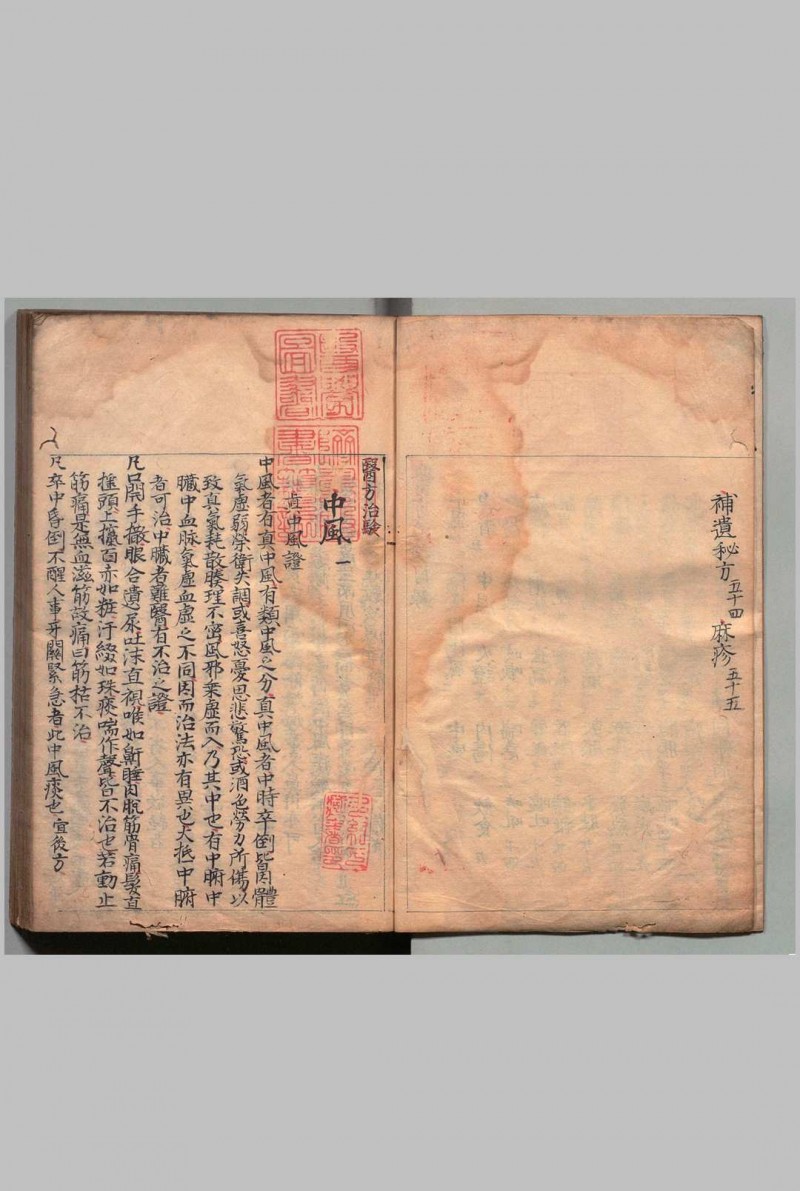 補遺秘方五十四 麻疹五十五
醫方治驗
中風 一
真中風證
中風者有真中風有類中風之分真中風者中時卒倒皆因體
氣虛弱榮衛失調或喜怒憂思悲驚恐或酒色勞力所傷以
致真氣耗散腠理不密風邪乗虛而入乃其中也有中腑中
臓中血脉氣虛血虛之不同因而治法亦有異也大抵中腑
者可治中臓者難醫有不治之證
凡口開手撒眼合遺尿吐沫直視喉如鼾睡肉脫筋骨痛髮直
搖頭上攛面赤如粧汗綴如珠痰喘作聲皆不治也若動止
筋痛是無血滋筋故痛曰筋枯不治
凡卒中昏倒不醒人事牙關緊急者此中風痰也宜後方